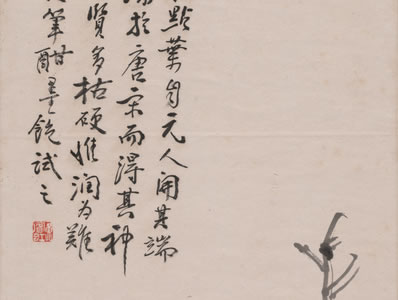 點葉自元人開其端
於唐宋而得其神
賢多枯硬惟潤為難
筆酣墨飽試之